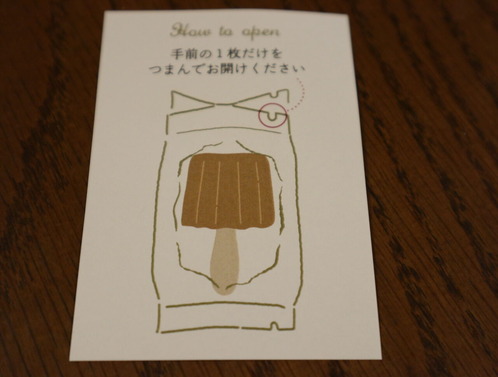 How to open
手前の1枚だけを
つまんでお開けください